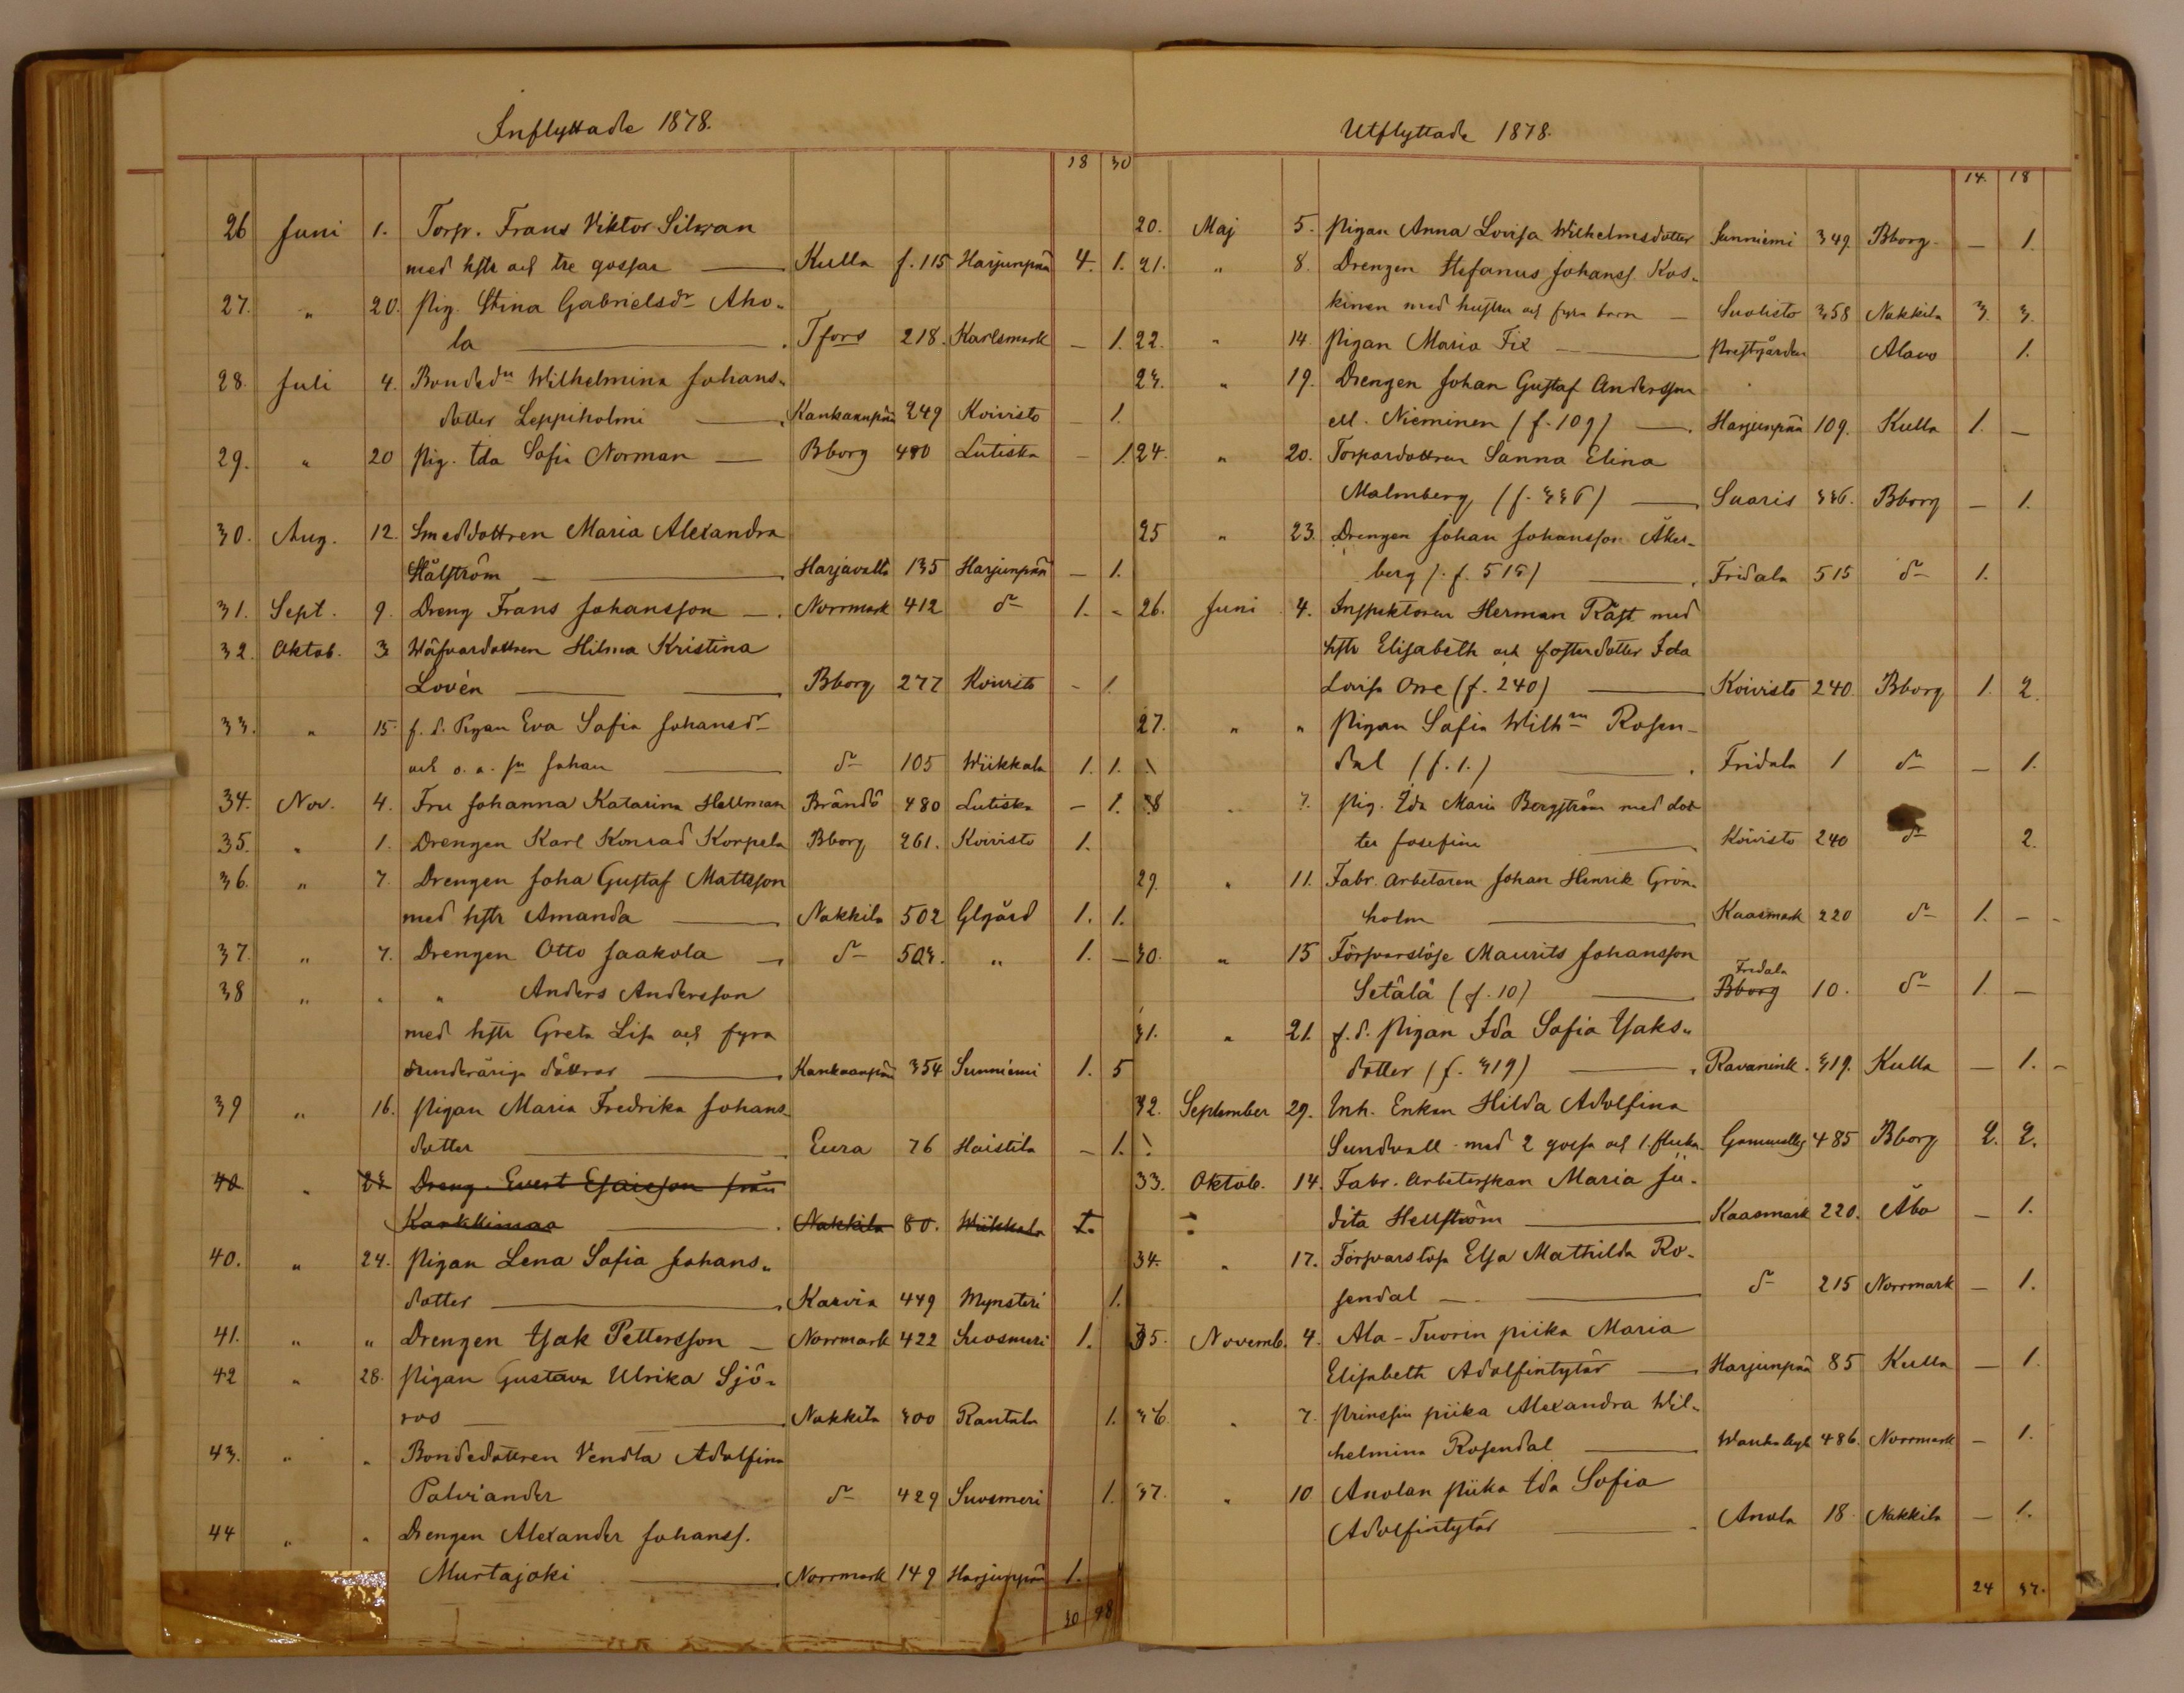 Inflyttade 1878.
18 30
26 Juni 1. Torp. Frans Viktor Silwan
med hstr och tre gossar Kulla f. 115 Harjunpää 4. 1.
27. " 20. Pig. Stina Gabrielsdr Aho-
la Tfors 218. Karlsmark - 1.
28. Juli 4. Bondedn Wilhelmina Johans-
dotter Leppiholmi Kankaanpää 249 Koivisto 1.
29. " 20 Pig. Ida Sofia Norman Bborg 480 Lutiska - 1.
30. Aug. 12. Smeddottren Maria Alexandra
Hälström Harjavalta 135 Harjunpää - 1.
31. Sept. 9. Dreng Frans Johansson Norrmark 412 dr 1. -
32. Oktob. 3 Wäfvardottren Hilma Kristina
Lovén Bborg 277 Koivisto - 1.
33. " 15. f. d. Pigan Eva Sofia Johansdr
och o. ä. sn Johan dr 105 Wiikkala 1. 1.
34. Nov. 4. Fru Johanna Katarina Hellman Brändö 480 Lutiska - 1.
35. " 1. Drengen Karl Konrad Korpela Bborg 261. Koivisto 1.
36. " 7. Drengen Joha Gustaf Mattsson
med hstr Amanda Nakkila 502 Glgård 1. 1.
37. " 7. Drengen Otto Jaakola dr 503. " 1. -
38 " " " Anders Andersson
med hstr Greta Lisa och fyra
underåriga döttrar Kankaanpää 354 Sunniemi 1. 5
39 " 16. Pigan Maria Fredrika Johans-
dotter Eura 76 Haistila - 1.
40. " 23 Dreng. Evert Esaisson från
Karkkimaa Nakkila 80. Wiikkala 1.
40. " 24. Pigan Lena Sofia Johans-
dotter Karvia 449 Mynsteri 1.
41. " " Drengen Isak Pettersson Norrmark 422 Suosmeri 1.
42 " 28. Pigan Gustava Ulrika Sjö-
roos Nakkila 300 Rantala 1.
43. " " Bondedottren Vendla Adolfina
Palviander dr 429 Suosmeri 1.
44 " " Drengen Alexander Johanss.
Murtajoki Norrmark 149 Harjunpää 1.
30 48
Utflyttade 1878.
14. 18
20. Maj 5. Pigan Anna Lovisa Wilhelmsdotter Sunniemi 349 Bborg - 1.
21. " 8. Drengen Stefanus Johanss. Kos-
kinen med hustru och fyra barn - Suolisto 358 Nakkila 3. 3.
22. " 14. Pigan Maria Fix Prestgården Alavo 1.
23. " 19. Drengen Johan Gustaf Andersson
ell. Nieminen (f. 109) Harjunpää 109. Kulla 1. -
24. " 20. Torpardottren Sanna Elina
Malmberg (f. 336) Saaris 336. Bborg - 1.
25 " 23. Drengen Johan Johansson Åker-
berg (f. 515) Fridala 515 dr 1.
26. Juni 4. Inspektoren Herman Räst med
hstr Elisabeth och fosterdotter Ida
Lovisa Orre (f. 240) Koivisto 240. Bborg 1. 2.
27. " " Pigan Sofia Wilhna Rosen-
dal (f. 1.) Fridala 1 dr - 1.
28 " 7. Pig. Ida Maria Bergström med dot-
ter Josefina Koivisto 240 dr 2.
29. " 11. Fabr. arbetaren Johan Henrik Grön-
holm Kaasmark 220 dr 1. -
30. " 15 Försvarslöse Maurits Johansson
Fridala
Setälä (f. 10) Bborg 10. dr 1. -
31. " 21. f. d. Pigan Ida Sofia Isaks-
dotter (f. 319) Ravanink. 319. Kulla - 1. -
32. September 29. Inh. Enkan Hilda Adolfina
Sundvall med 2 gossa och 1. flicka 485 Bborg 2. 2.
33. Oktob. 14. Fabr. arbeterskan Maria Ju-
dita Hellström Kaasmark 220. Åbo - 1.
34. " 17. Försvarslösa Elsa Mathilda Ro-
sendal dr 215 Norrmark - 1.
35. Novemb. 4. Ala-Tuorin piika Maria
Elisabeth Adolfintytär Harjunpää 85 Kulla - 1.
36. " 7. Prinssin piika Alexandra Wil-
helmina Rosendal 486. Norrmark - 1.
37. " 10 Anolan piika Ida Sofia
Adolfintytär Anola 18 Nakkila - 1.
24 37.